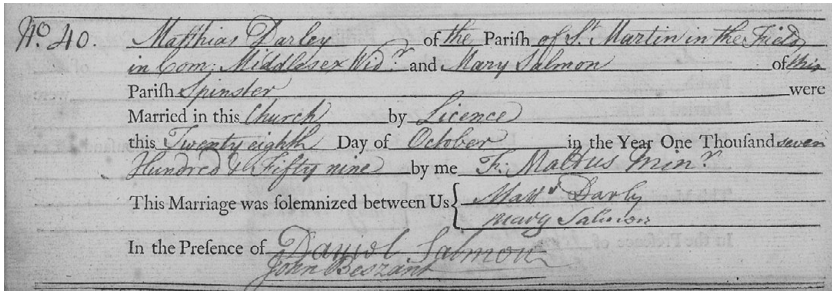 No. 40. Matthias Darley of the Parish of St. Martin in the Field
in Com: Middlesex Widr. and Mary Salmon of this
Parish Spinster were
Married in this Church by Licence
this Twenty eighth Day of October in the Year One Thousand seven
Hundred & Fifty nine by me F: Maltus Minr.
This Marriage was solemnized between Us { Matt Darly
Mary Salmon
In the Presence of Daniel Salmon
John Beszant